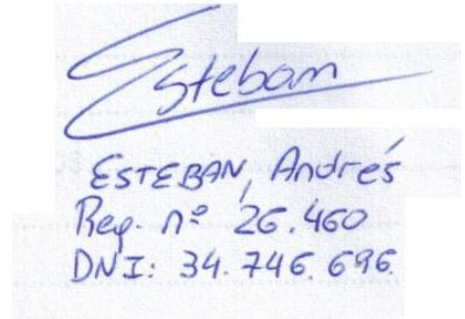 Esteban
ESTEBAN, Andrés
Reg. nº 26.460
DNI: 34.746.696